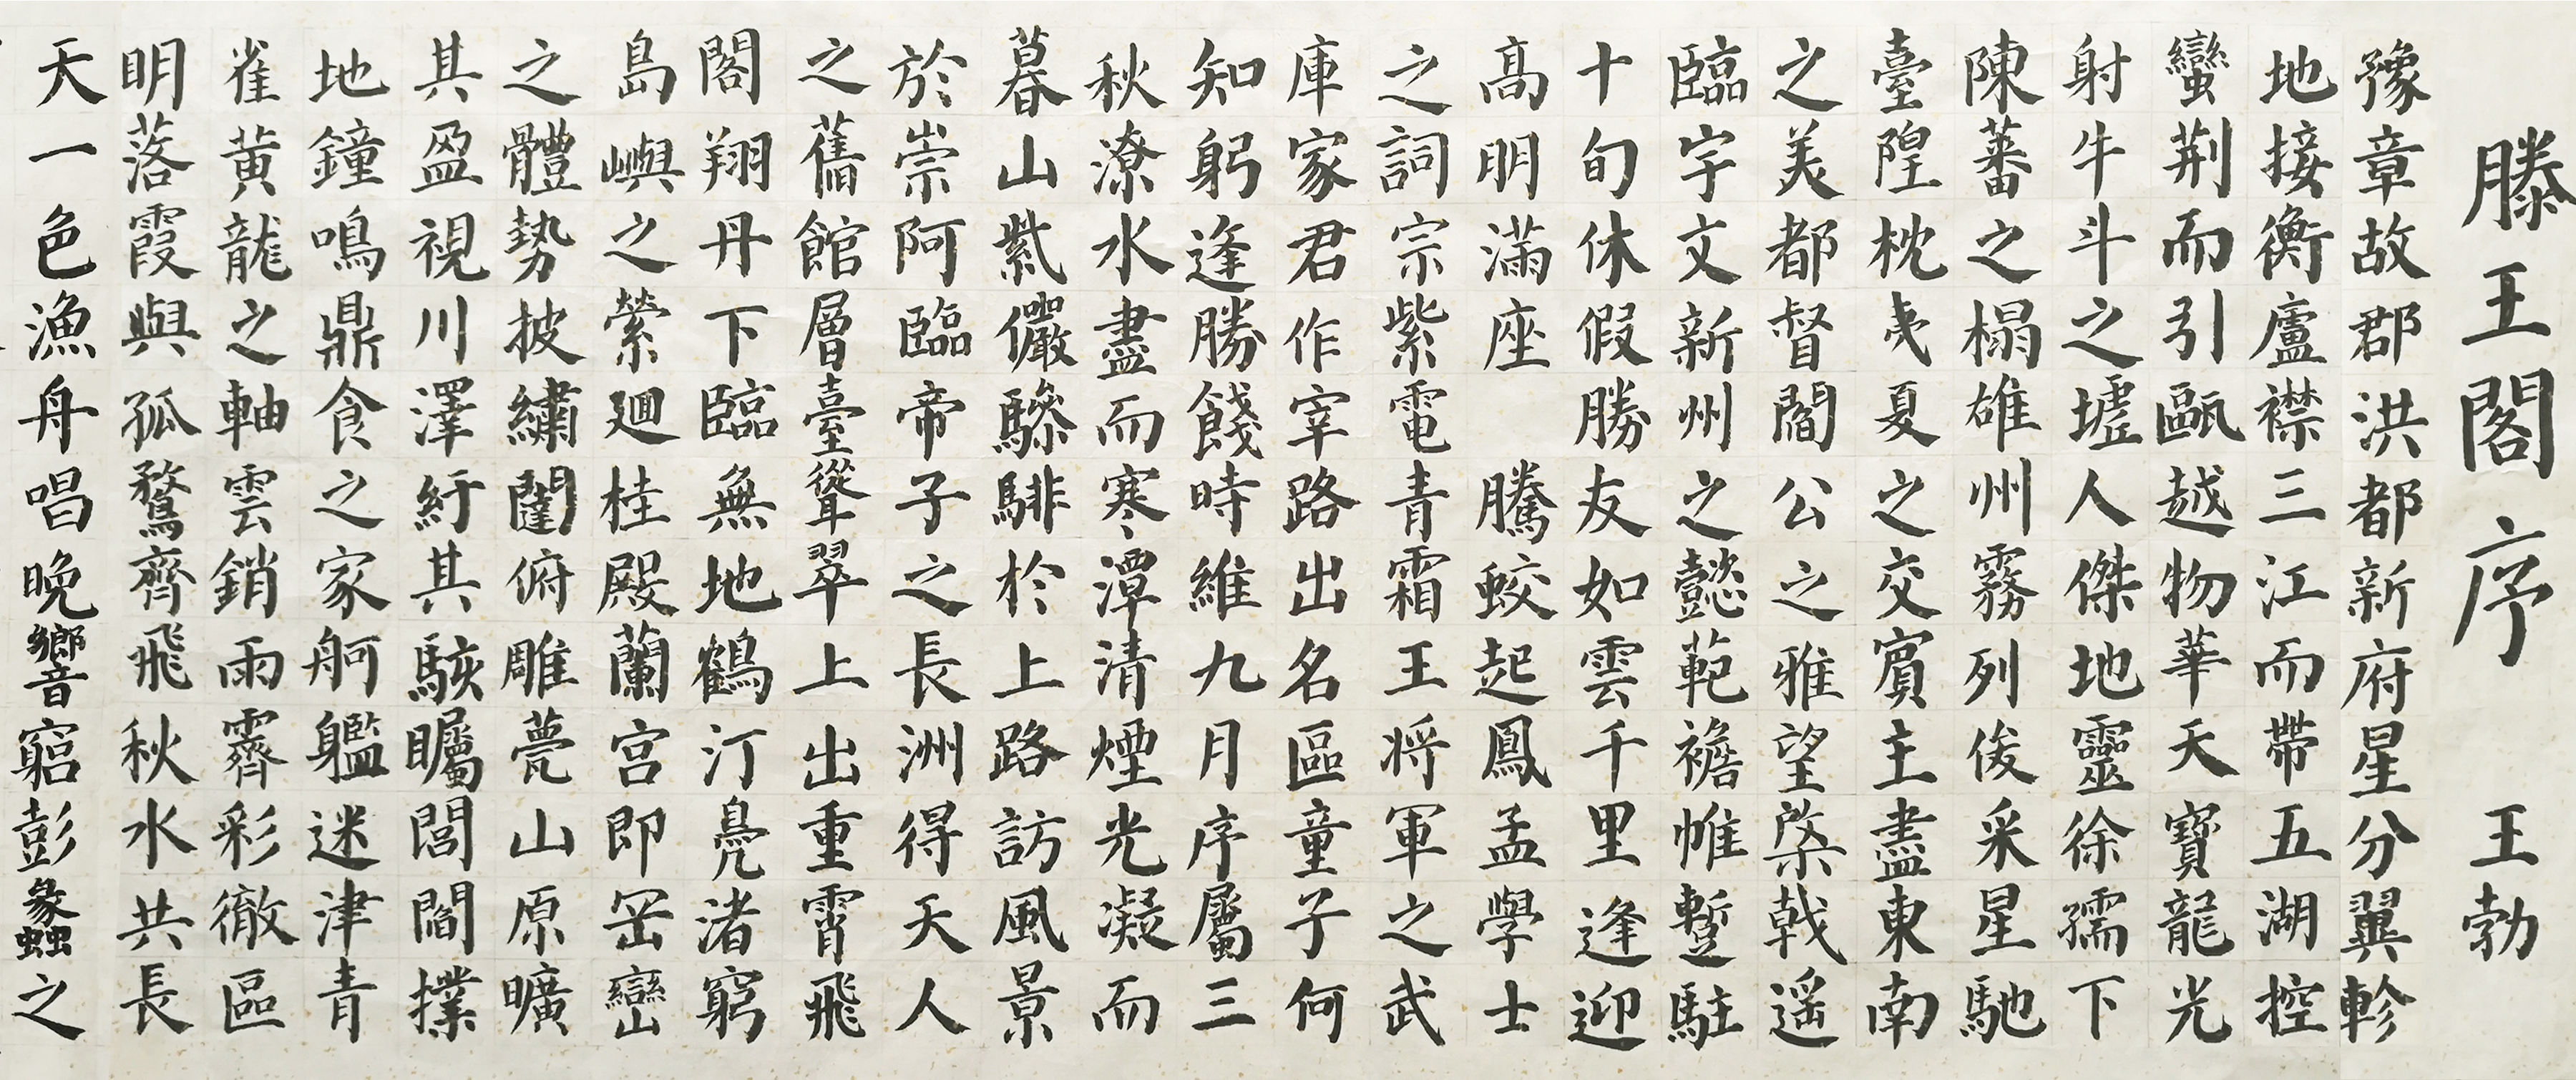 滕王閣序 王勃
豫章故郡洪都新府星分翼軫
地接衡廬襟三江而帶五湖控
蠻荆而引甌越物華天寶龍光
射牛斗之墟人傑地靈徐孺下
陳蕃之榻雄州霧列俊采星馳
臺隍枕夷夏之交賓主盡東南
之美都督閻公之雅望棨戟遥
臨宇文新州之懿範襜帷蹔駐
十旬休假勝友如雲千里逢迎
髙明滿座 騰蛟起鳳孟學士
之詞宗紫電青霜王將軍之武
庫家君作宰路出名區童子何
知躬逢勝餞時維九月序屬三
秋潦水盡而寒潭清煙光凝而
暮山紫儼驂騑於上路訪風景
於崇阿臨帝子之長洲得天人
之舊館層臺聳翠上出重霄飛
閣翔丹下臨無地鶴汀鳧渚窮
島嶼之縈廻桂殿蘭宮即岡巒
之體勢披繡闥俯雕甍山原曠
其盈視川澤紆其駭矚閭閻撲
地鐘鳴鼎食之家舸艦迷津青
雀黄龍之軸雲銷雨霽彩徹區
明落霞與孤鶩齊飛秋水共長
天一色漁舟唱晚響窮彭蠡之